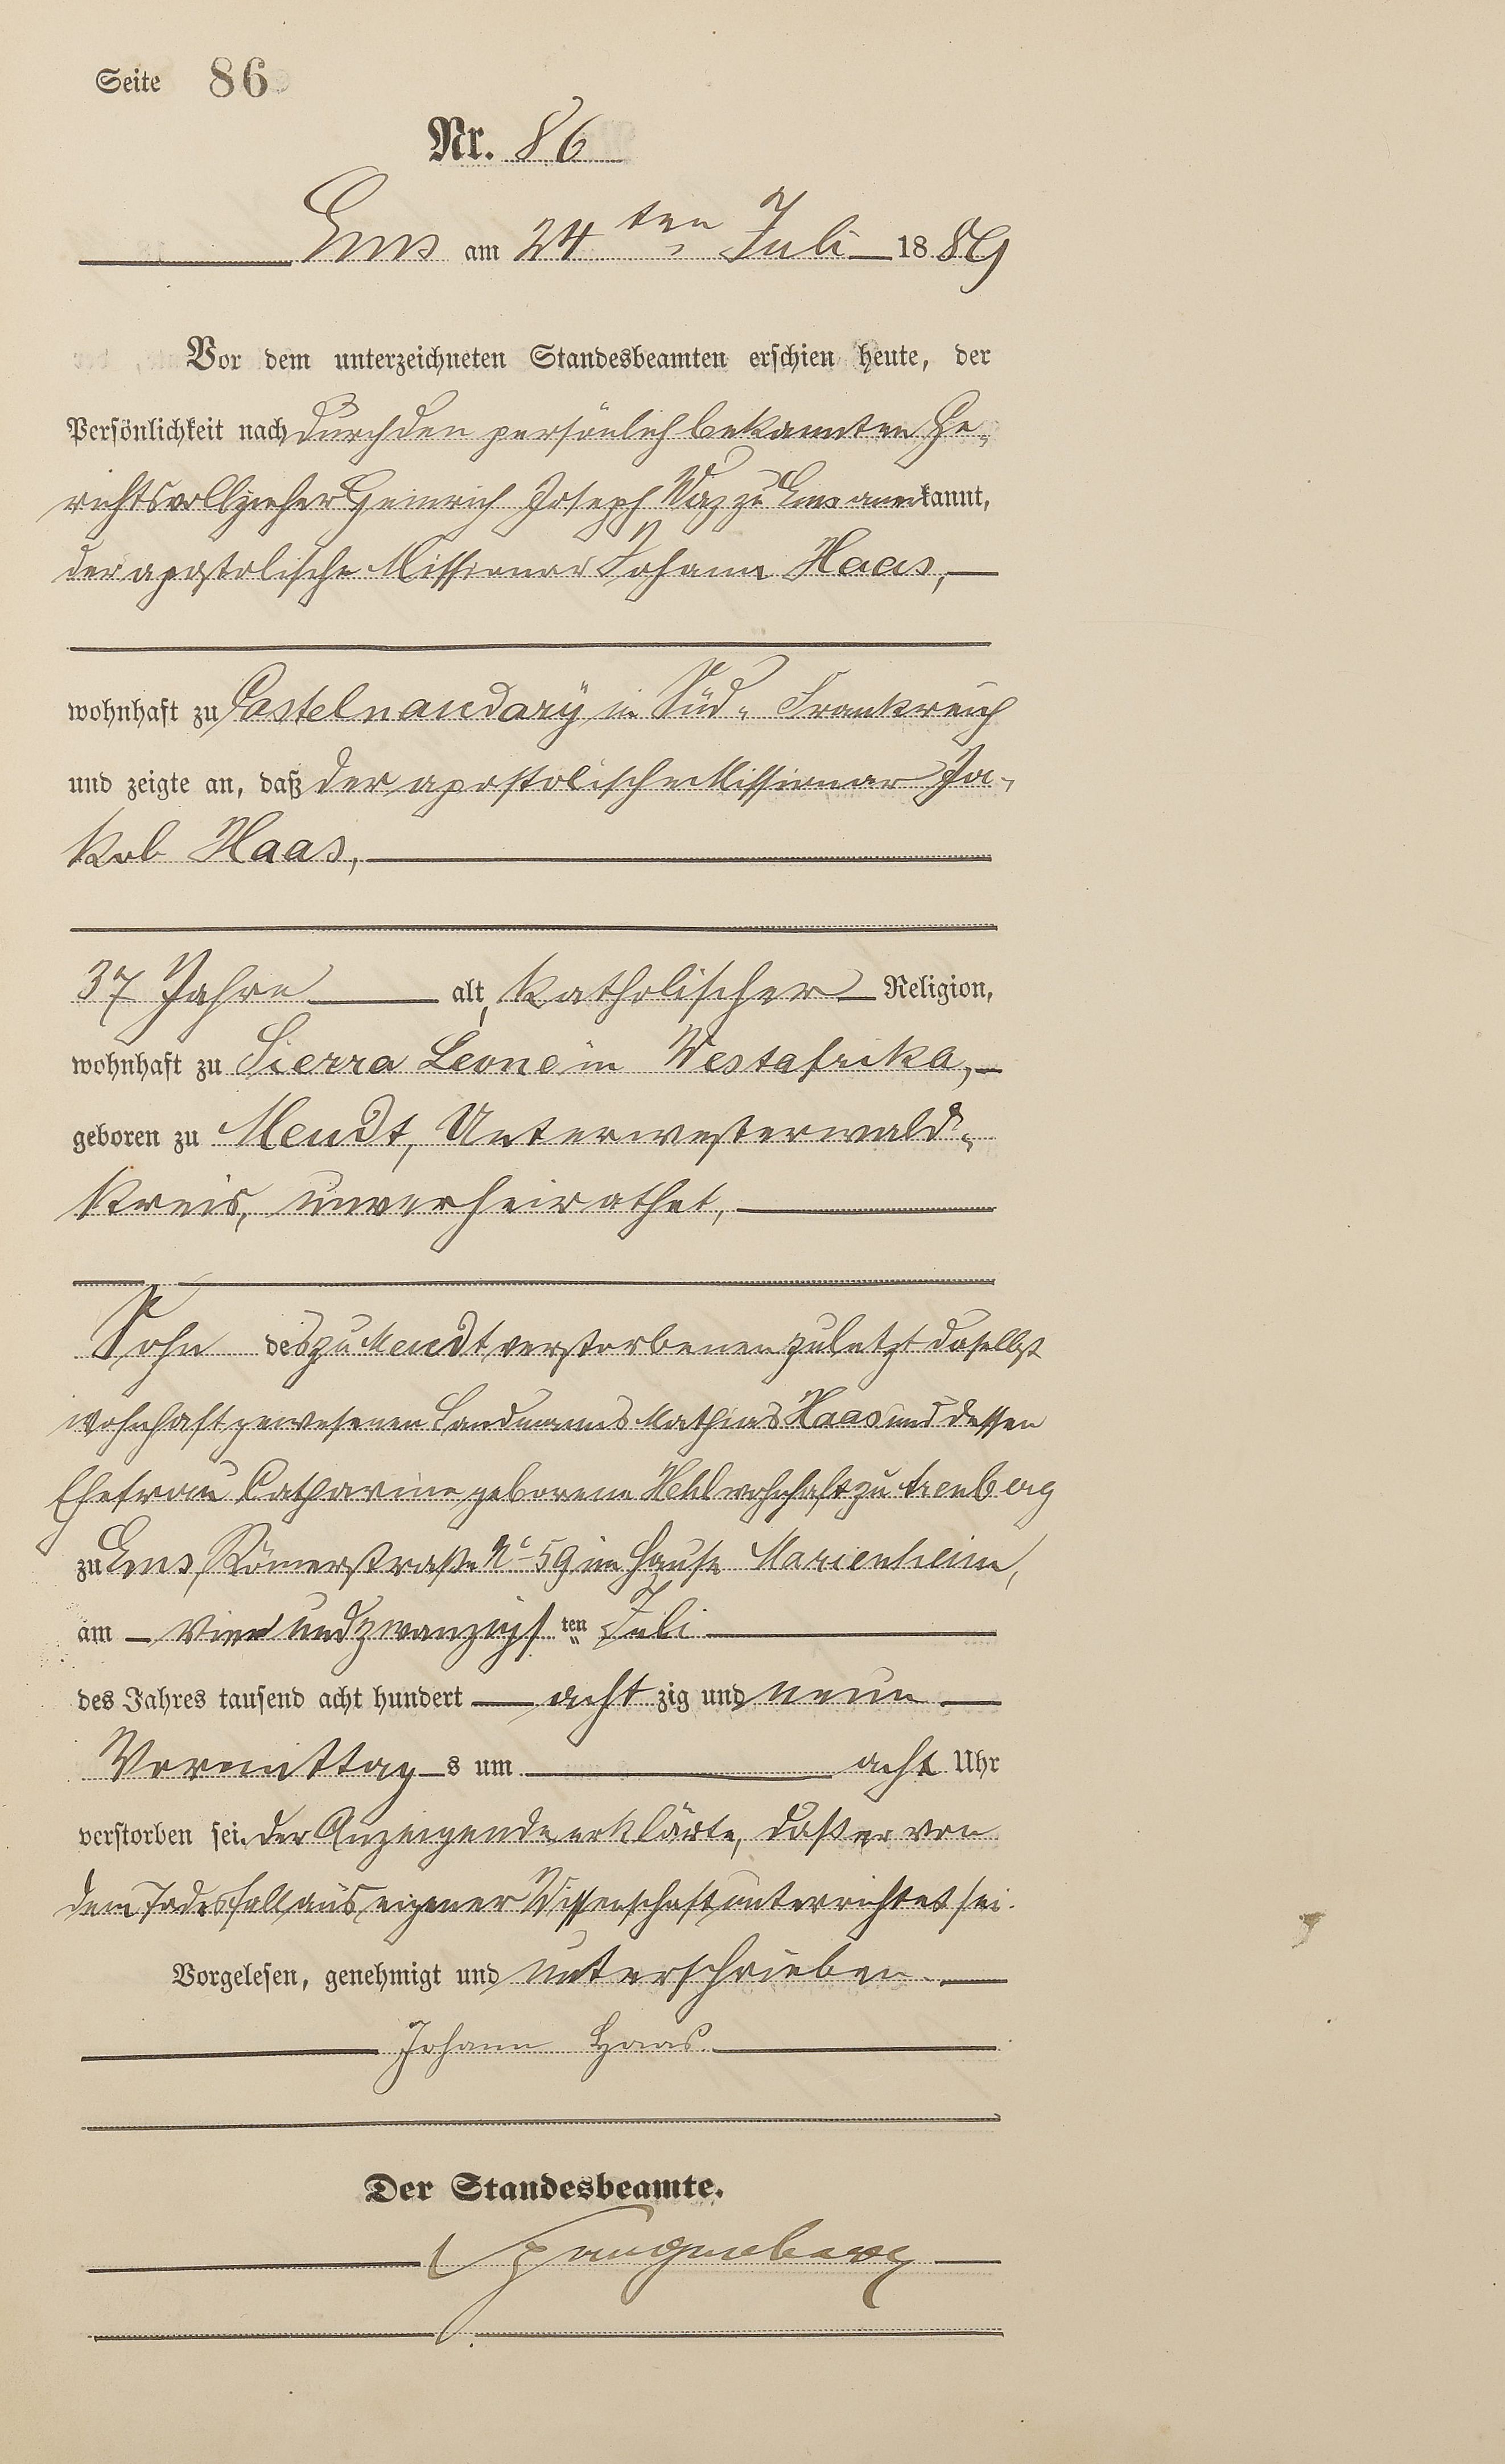 Seite 86
Nr. 86
Ems am 24ten Juli 1889
Vor dem unterzeichneten Standesbeamten erschien heute, der
Persönlichkeit nach durch den persönlich bekannten Ge-
richtsvollzieher Heinrich Joseph zu Ems anerkannt,
der apostolische Missionar Johann Haas,
wohnhaft zu Castelnaudary in Süd-Frankreich
und zeigte an, daß der apostolische Missionar Ja-
kob Haas,
37 Jahre alt, katholischer Religion,
wohnhaft zu Sierra Leone in Westafrika,
geboren zu Meudt, Unterwesterwald-
kreis, unverheirathet,
Sohn des zu Meudt verstorbenen zuletzt daselbst
wohnhaft gewesenen Landmanns Mathias Haas und dessen
Ehefrau Catharine geborene wohnhaft zu Arenberg
zu Ems, Römerstraße No 59 im Hause Marienheim,
am vier und zwanzigsten Juli
des Jahres tausend acht hundert achtzig und neun
Vormittags um acht Uhr
verstorben sei. Der Anzeigende erklärte, daß er von
dem Todesfall aus eigener Wissenschaft unterrichtet sei.
Vorgelesen, genehmigt und unterschrieben
Johann Haas.
Der Standesbeamte.
Spangenberg